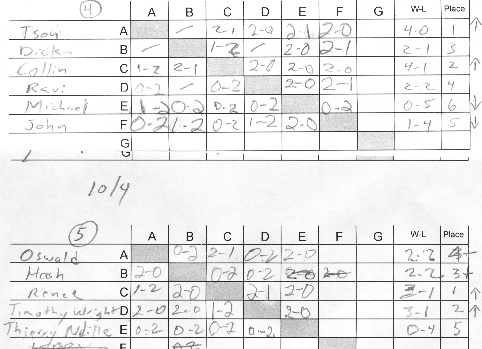 4 A B C D E F G W-L Place
Tson A / 2-1 2-0 2-1 2-0 4-0 1 ↑
B / 1-2 / 2-0 2-1 2-1 3
Collin C 1-2 2-1 2-0 2-0 2-0 4-1 2 ↑
Ravi D 0-2 / 0-2 2-0 2-1 2-2 4
Michael E 1-2 0-2 0-2 0-2 0-2 0-5 6 ↓
John F 0-2 1-2 0-2 1-2 2-0 1-4 5 ↓
G
G
10/4
5 A B C D E F G W-L Place
Oswald A 0-2 2-1 0-2 2-0 2-2 4
B 2-0 0-2 0-2 2-0 2-0 2-2 3
Renee C 1-2 2-0 2-1 2-0 3-1 1 ↑
Timothy Wright D 2-0 2-0 1-2 2-0 3-1 2 ↑
Thierry E 0-2 0-2 0-2 0-2 0-4 5
F